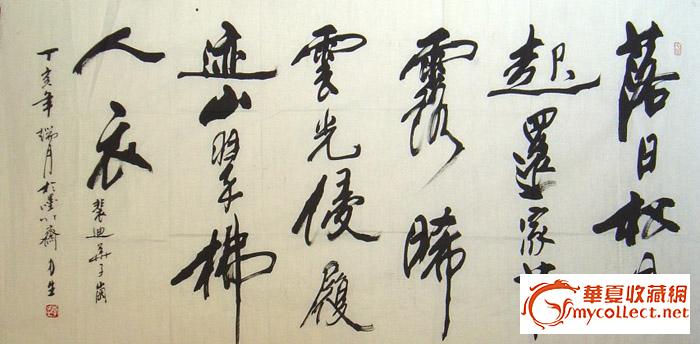 落日松風
起還家草
露晞
雲光侵履
迹山翠拂
人衣
裴迪華子崗
丁亥年端月於墨齋生
華夏收藏網
mycollect.net